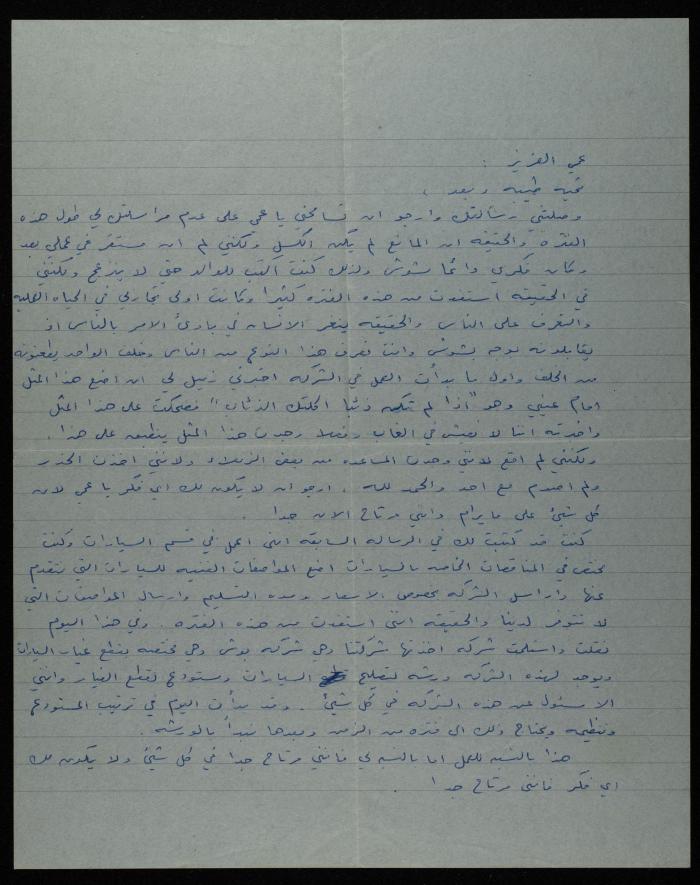 عمي العزيز :
تحيه طيبه وبعد ،
وصلتني رسالتك وارجو ان تسامحني يا عمي على عدم مراسلتك لي طول هذه
الفتره والحقيقه ان المانع لم يكن الكسل ولكنني لم ان مستقر في عملي بعد
وكان فكري دائما مشوش ولذلك كنت اكتب للوالد حتى لا ينزعج ولكنني
في الحقيقه استفدت من هذه الفتره كثيرا وكانت اولى تجاربي في الحياه العمليه
والتعرف على الناس والحقيقه يتغر الانسان في بادئ الامر بالناس اذ
يقابلونه بوجه بشوش وانت تعرف هذا النوع من الناس وخلف الواحد يطعنونه
من الخلف واول ما بدأت العمل في الشركه اخبرني زميل لي ان اضع هذا المثل
امام عيني وهو "اذا لم تكن ذئبا اكلتك الذئاب" فضحكت على هذا المثل
واخبرته اننا لا نعيش في الغاب وفعلا وجدت هذا المثل ينطبق على هذا .
ولكنني لم اقع لانني وجدت المساعده من بعض الزملاء ولانني اخذت الحذر
ولم اصدم مع احد والحمد لله . ارجو ان لا يكون لك اي فكر يا عمي لان
كل شيئ على ما يرام وانني مرتاح الان جدا .
كنت قد كتبت لك في الرساله السابقه انني اعمل في قسم السيارات وكنت
مختص في المناقصات الخاصه بالسيارات اضع المواصفات الفنيه للسيارات التي نتقدم
عنها واراسل الشركه بخصوص الاسعار ومده التسليم وارسال المواصفات التي
لا تتوفر لدينا والحقيقه انني استفدت من هذه الفتره . وفي هذا اليوم
نقلت واستلمت شركه اخذتها شركتنا وهي شركه بوش وهي مختصه بقطع غيار السيارات
ويوجد لهذه الشركه ورشه لتصليح السيارات ومستودع لقطع الغيار وانني
الا مسئول عن هذه الشركه في كل شيئ . وقد بدأت اليوم في ترتيب المستودع
وتنظيمه ويحتاج ذلك الى فتره من الزمن وبعدها نبدأ بالورشه .
هذا بالنسبه للعمل اما بالنسبه لي فانني مرتاح جدا في كل شيئ ولا يكون لك
اي فكر فانني مرتاح جدا .